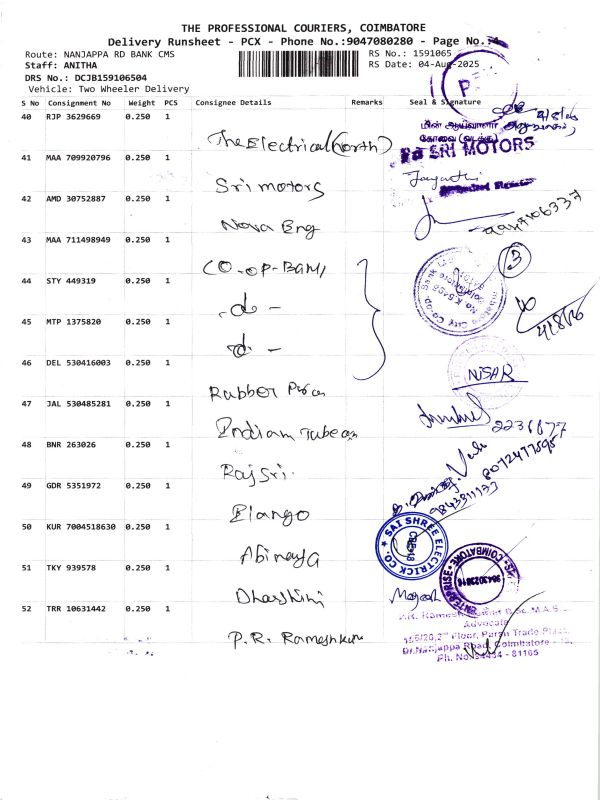 THE PROFESSIONAL COURIERS, COIMBATORE
Delivery Runsheet - PCX - Phone No.:9047080280 - Page No.:
Route: NANJAPPA RD BANK CMS
RS No.: 1591065
Staff: ANITHA
RS Date: 04-Aug-2025
DRS No.: DCJB159106504
Vehicle: Two Wheeler Delivery
S No Consignment No Weight PCS Consignee Details Remarks Seal & Signature
40 RJP 3629669 0.250 1 The Electrical (North)
மின் ஆய்வாளர் அலுவலகம்,
கோவை (வடக்கு)
41 MAA 709920796 0.250 1 Sri motors
SRI MOTORS
42 AMD 30752887 0.250 1 Nova Eng
43 MAA 711498949 0.250 1 CO-OP-Bank
44 STY 449319 0.250 1 - d -
3
45 MTP 1375820 0.250 1 - d -
46 DEL 530416003 0.250 1 Rubber
NISAR
47 JAL 530485281 0.250 1 Indian Tube
48 BNR 263026 0.250 1 Raj Sri.
8072477595
49 GDR 5351972 0.250 1 Elango
9843911133
50 KUR 7004518630 0.250 1 Abinaya
SAI SHREE ELECTRICK CO.
51 TKY 939578 0.250 1 Dharshini
COIMBATORE
ENTERPRISE
Magesh
52 TRR 10631442 0.250 1 P.R. Rameshkumar
Advocate
2nd Floor, Parsn Trade Plaza,
Dr.Nanjappa Road, Coimbatore - 18.
Ph. No:94434 - 81165